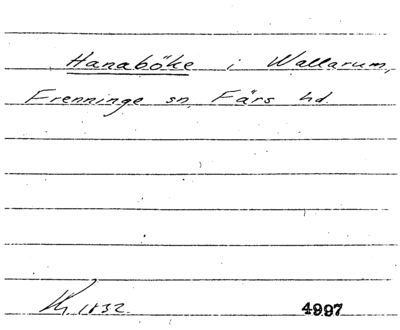 Hanaböke i Wallarum,
Frenninge sn Färs hd.
1832 4997